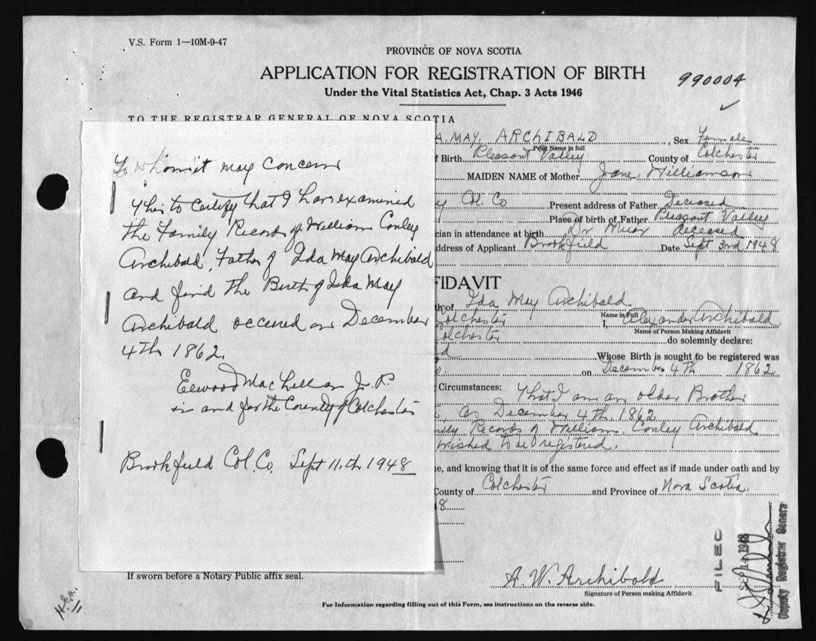 V.S. Form 1—10M-9-47
PROVINCE OF NOVA SCOTIA
APPLICATION FOR REGISTRATION OF BIRTH
990004
Under the Vital Statistics Act, Chap. 3 Acts 1946
TO THE REGISTRAR GENERAL OF NOVA SCOTIA
To whom it may concern
This to certify that I have examined
the Family Records of William Conley
Archibald, Father of Ida May Archibald
and find the Birth of Ida May
Archibald occured on December
4th 1862.
Elwood MacLellan J.P.
in and for the County of Colchester
Brookfield Col. Co. Sept 11.th 1948
A. MAY, ARCHIBALD, Sex Female
Print Name in full
f Birth Pleasant Valley County of Colchester
MAIDEN NAME of Mother Jane Williamson
y Col. Co Present address of Father Deceased
Place of birth of Father Pleasant Valley
cian in attendance at birth Dr Muir deceased
ddress of Applicant Brookfield Date Sept 3rd 1948
FIDAVIT
th of Ida May Archibald
Name in Full
Colchester I, Alexander Archibald
Name of Person Making Affidavit
Colchester do solemnly declare:
d Whose Birth is sought to be registered was
on December 4th 1862
Circumstances: That I am an older Brother
as December 4th 1862
ily Records of William Conley Archibald
wished to be registered.
e, and knowing that it is of the same force and effect as if made under oath and by
County of Colchester and Province of Nova Scotia
8.
If sworn before a Notary Public affix seal.
A. W. Archibald
Signature of Person making Affidavit
For Information regarding filling out of this Form, see instructions on the reverse side.
FILED
1948
Deputy Registrar General